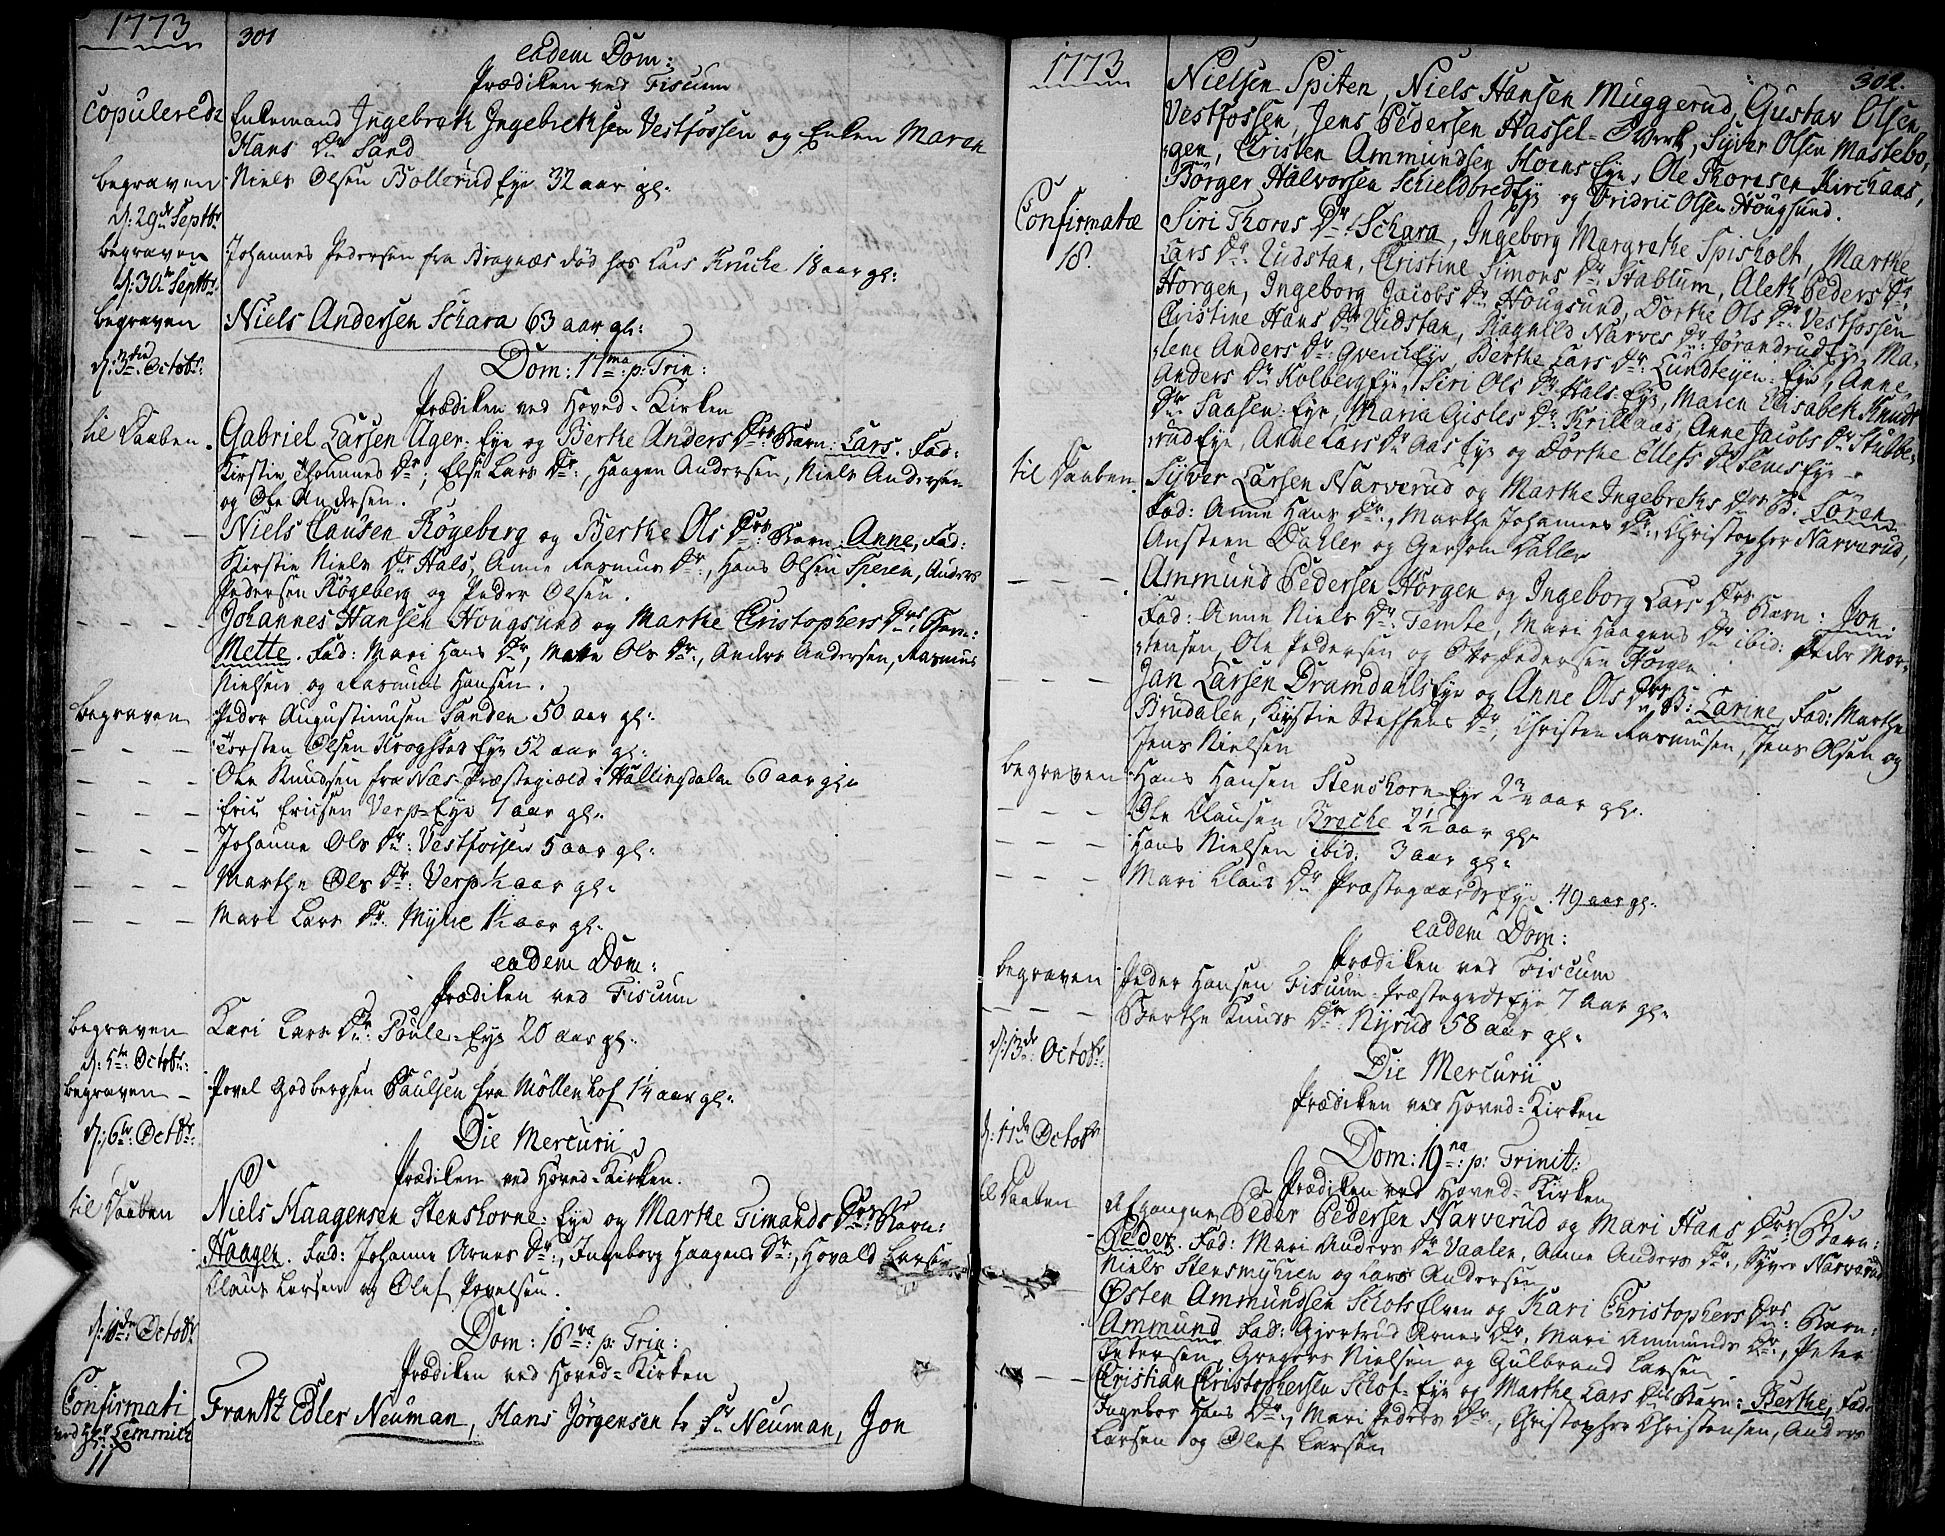 1773
301
eadem Dom:
Prædiken ved Fiscum
Copulerede
Enkemand Ingebreth Ingebrethsen Vestfossen og Enken Maren
Hans Dr Sand
begraven Niels Olsen Bollerud Eye 32 aar gl:
d: 29de Septbr
begraven Johannes Pedersen fra Bragnæs død hos Lars Kruche 18 aar gl:
d: 30te Septbr
begraven Niels Andersen Schara 63 aar gl:
d: 3die Octobr: Dom: 17ma p: Trin:
Prædiken ved Hoved-Kirken
til Daaben. Gabriel Larsen Ager-Eye og Berthe Anders Drs Barn: Lars. Fad:
Kirstie Johannes Dr, Else Lars Dr, Haagen Andersen, Niels Andersen
og Ole Andersen.
Niels Clausen Kögeberg og Berthe Ols Drs Barn: Anne, Fad:
Kirstie Niels Dr Hals, Anne Rasmus Dr:, Hans Olsen Speren, Anders
Pedersen Kögeberg og Peder Olsen.
Johannes Hansen Hougsund og Marthe Christophers Drs: Barn:
Mette. Fad: Mari Hans Dr, Mari Ols Dr, Anders Andersen, Rasmus
Nielsen og Rasmus Hansen.
begraven Peder Augustinusen Sanden 50 aar gl:
Torsten Olsen Krogshos Eye 52 aar gl:
Ole Knudsen fra Næs-Præstegiæld i Hallingdalen 60 aar gl:
Eric Ericsen Verp-Eye 7 aar gl:
Johanne Ols Dr: Vestfossen 5 aar gl:
Marthe Ols Dr: Verp ½ aar gl:
Mari Lars Dr: Myhre 1½ aar gl:
eadem Dom:
Prædiken ved Fiscum
begraven Kari Lars Dr: Foule-Eye 20 aar gl:
d: 5te Octobr:
begraven Povel Godbergsen Paulsen fra Möllenhof 1¼ aar gl:
d: 6te Octobr: Die Mercurii
Prædiken ved Hoved-Kirken.
til Daaben Niels Haagensen Stenshorne-Eye og Marthe Timands Drs Barn:
Haagen. Fad: Johanne Arnes Dr:, Ingeborg Haagens Dr:, Hovald Larsen
Claus Larsen og Olef Povelsen.
d: 10de Octobr Dom: 18va p: Trin:
Prædiken ved Hoved-Kirken
Confirmati Frantz Edler Neuman, Hans Jörgensen Neuman, Jon
ved Hr: Lemmich
11
1773
302.
Nielsen Spiten, Niels Hansen Muggerud, Gustav Olsen
Vestfossen, Jens Pedersen Hassel-Werk, Syver Olsen Mastebo,
gen, Christen Ammundsen Hoens Eye, Ole Thoresen Kirchaas,
Börger Halvorsen Schieldbred Eye og Fridric Olsen Hougsund.
Confirmatæ Siri Thores Dr: Schara, Ingeborg Margrethe Spisholt, Marthe
18. Lars Dr: Rudstan, Christine Simons Dr Stablum, Aleth Peders Dr
Horgen, Ingeborg Jacobs Dr Hougsund, Dorthe Ols Dr Vestfossen
Christine Hans Dr Rudstan, Ragnild Narves Dr Jörandrud Eye, Ma-
lene Anders Dr Eye, Berthe Lars Dr: Lundteyen-Eye, Anne
Anders Dr Kolberg Eye, Siri Ols Dr Hals-Eye, Maren Elisabeth Knuds
Dr Saasen-Eye, Maria Gisles Dr Krillaas, Anne Jacobs Dr Stubbe-
rud Eye, Anne Lars Dr Aas Eye og Dorthe Ellefs Dr Sems Eye
til Daaben. Syver Larsen Narverud og Marthe Ingebreths Drs B: Sören.
Fad: Anne Hans Dr:, Marthe Johannes Dr:, Christopher Narverud,
Austeen Dahler og Gersom Dahler
Ammund Pedersen Horgen og Ingeborg Lars Drs Barn: Jon.
Fad: Anne Niels Dr: Temte, Mari Haagens Dr ibid: Peder Mor-
tensen, Ole Pedersen og Pedersen Horgen.
Jan Larsen Dramdahls Eye og Anne Ols Drs B: Carine, Fad: Marthe
Brudalen, Kirstie Steffens Dr, Christen Rasmusen, Jens Olsen og
Jens Nielsen
begraven Hans Hansen Stenshorn-Eye aar gl:
Ole Clausen Breche 2½ aar gl:
Hans Nielsen ibid: 3 aar gl:
Mari Claus Dr Præstegaards Eye 49 aar gl:
eadem Dom:
Prædiken ved Fiscum
begraven Peder Hansen Fiscum-Præstegrds Eye 7 aar gl:
Berthe Knuds Dr: Nyrud 58 aar gl:
d: 13de Octobr: Die Mercurii
Prædiken ved Hoved-Kirken
d: 17de Octobr Dom: 19na: p: Trinit:
Prædiken ved Hoved-Kirken
til Daaben Afgangne Peder Pedersen Narverud og Mari Hans Drs Barn:
Peder. Fad: Mari Anders Dr Vaalen, Anne Anders Dr:, Syver Narverud
Niels Stensmyhren og Lars Andersen
Østen Ammundsen Schotselven og Kari Christophers Drs: Barn:
Ammund Fad: Gjertrud Arnes Dr, Mari Ammunds Dr:, Peter
Petersen, Gregers Nielsen og Gulbrand Larsen
Christian Christophersen Schof-Eye og Marthe Lars Drs Barn: Berthe, Fad:
Ingebor Hans Dr:, Mari Peders Dr:, Christopher Christensen, Anders
Larsen og Olef Larsen